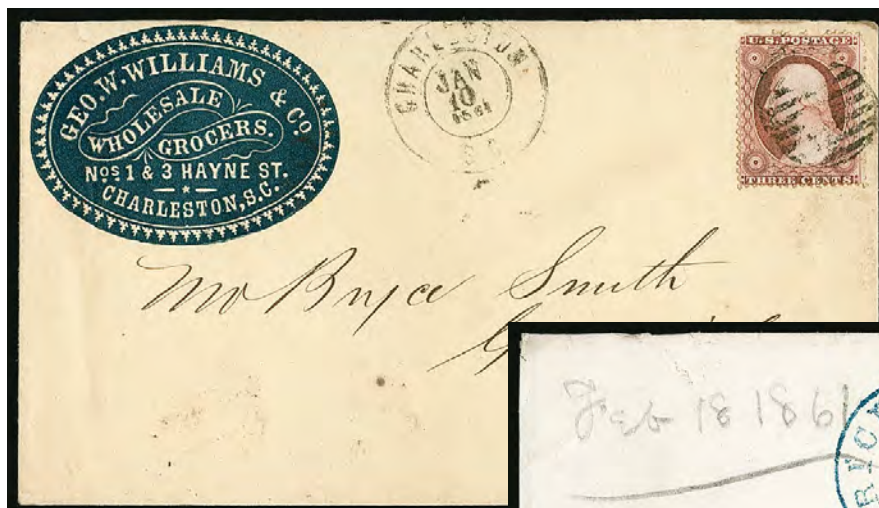 GEO. W. WILLIAMS & CO
WHOLESALE
GROCERS.
Nos 1 & 3 HAYNE ST.
CHARLESTON, S.C.
CHARLESTON
JAN
10
1861
U.S. POSTAGE
THREE CENTS
Bryce Smith
Feb 18 1861
RICH